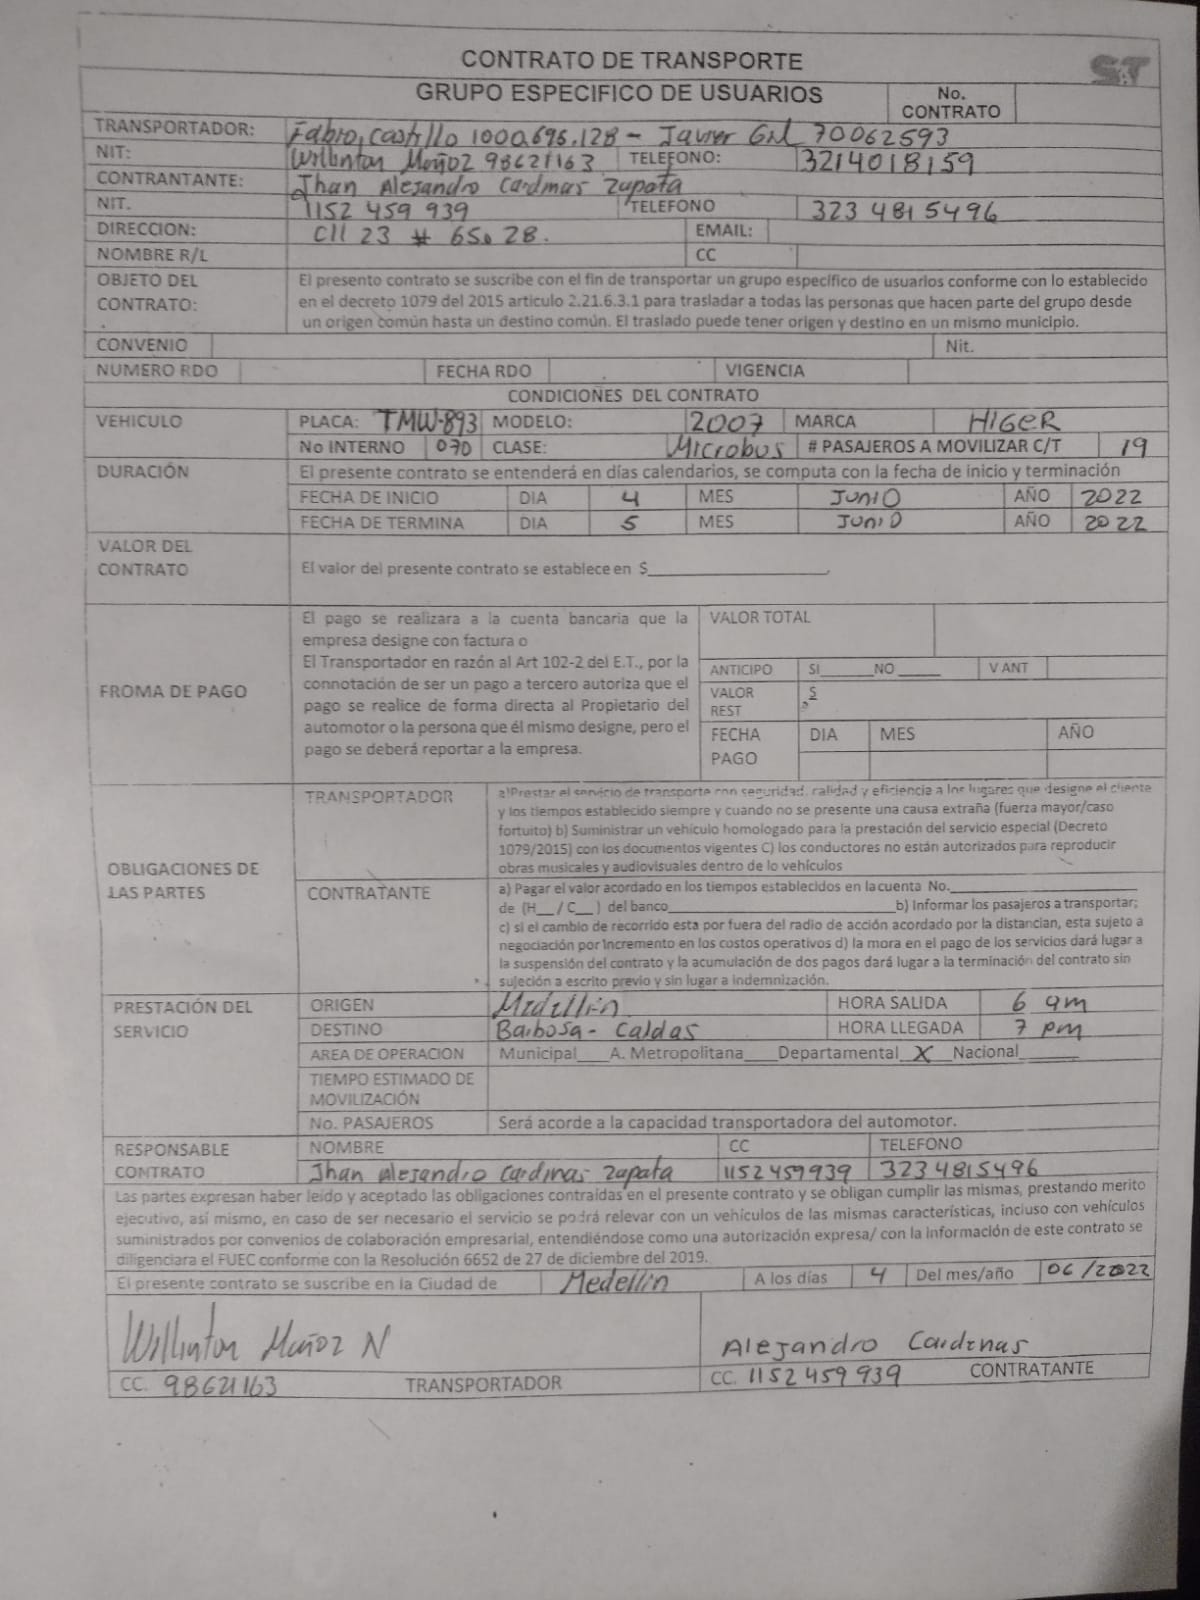 CONTRATO DE TRANSPORTE
SAT
GRUPO ESPECIFICO DE USUARIOS No. CONTRATO
TRANSPORTADOR: Fabio, Castillo 1000.696.128 - Javier Gil 70062593
NIT: Willinton Muñoz 98621163 TELEFONO: 3214018159
CONTRANTANTE: Jhan Alejandro Cardinas Zupata
NIT. 1152 459 939 TELEFONO 323 4815496
DIRECCION: Cll 23 # 65. 28. EMAIL:
NOMBRE R/L CC
OBJETO DEL CONTRATO: El presento contrato se suscribe con el fin de transportar un grupo especifico de usuarios conforme con lo establecido
en el decreto 1079 del 2015 articulo 2.21.6.3.1 para trasladar a todas las personas que hacen parte del grupo desde
un origen común hasta un destino común. El traslado puede tener origen y destino en un mismo municipio.
CONVENIO Nit.
NUMERO RDO FECHA RDO VIGENCIA
CONDICIONES DEL CONTRATO
VEHICULO PLACA: TMW-893 MODELO: 2007 MARCA HIGER
No INTERNO 070 CLASE: Microbus # PASAJEROS A MOVILIZAR C/T 19
DURACIÓN El presente contrato se entenderá en días calendarios, se computa con la fecha de inicio y terminación
FECHA DE INICIO DIA 4 MES JUNIO AÑO 2022
FECHA DE TERMINA DIA 5 MES JUNIO AÑO 2022
VALOR DEL CONTRATO El valor del presente contrato se establece en $____________________.
FROMA DE PAGO El pago se realizara a la cuenta bancaria que la
empresa designe con factura o
El Transportador en razón al Art 102-2 del E.T., por la
connotación de ser un pago a tercero autoriza que el
pago se realice de forma directa al Propietario del
automotor o la persona que él mismo designe, pero el
pago se deberá reportar a la empresa.
VALOR TOTAL
ANTICIPO SI______NO_____ V ANT
VALOR REST $
FECHA PAGO DIA MES AÑO
OBLIGACIONES DE LAS PARTES
TRANSPORTADOR a)Prestar el servicio de transporte con seguridad, calidad y eficiencia a los lugares que designe el cliente
y los tiempos establecido siempre y cuando no se presente una causa extraña (fuerza mayor/caso
fortuito) b) Suministrar un vehículo homologado para la prestación del servicio especial (Decreto
1079/2015) con los documentos vigentes C) los conductores no están autorizados para reproducir
obras musicales y audiovisuales dentro de lo vehículos
CONTRATANTE a) Pagar el valor acordado en los tiempos establecidos en la cuenta No.____________________
de (H__/ C__ ) del banco_________________________b) Informar los pasajeros a transportar;
c) si el cambio de recorrido esta por fuera del radio de acción acordado por la distancian, esta sujeto a
negociación por incremento en los costos operativos d) la mora en el pago de los servicios dará lugar a
la suspensión del contrato y la acumulación de dos pagos dará lugar a la terminación del contrato sin
sujeción a escrito previo y sin lugar a indemnización.
PRESTACIÓN DEL SERVICIO
ORIGEN Medellin HORA SALIDA 6 am
DESTINO Barbosa - Caldas HORA LLEGADA 7 pm
AREA DE OPERACION Municipal___A. Metropolitana____Departamental_X_Nacional______
TIEMPO ESTIMADO DE MOVILIZACIÓN
No. PASAJEROS Será acorde a la capacidad transportadora del automotor.
RESPONSABLE CONTRATO NOMBRE CC TELEFONO
Jhan Alejandro Cardinas Zapata 1152459939 3234815496
Las partes expresan haber leído y aceptado las obligaciones contraídas en el presente contrato y se obligan cumplir las mismas, prestando merito
ejecutivo, así mismo, en caso de ser necesario el servicio se podrá relevar con un vehículos de las mismas características, incluso con vehículos
suministrados por convenios de colaboración empresarial, entendiéndose como una autorización expresa/ con la información de este contrato se
diligenciara el FUEC conforme con la Resolución 6652 de 27 de diciembre del 2019.
El presente contrato se suscribe en la Ciudad de Medellin A los días 4 Del mes/año 06/2022
Willinton Muñoz N Alejandro Cardenas
CC. 98621163 TRANSPORTADOR CC. 1152 459 939 CONTRATANTE